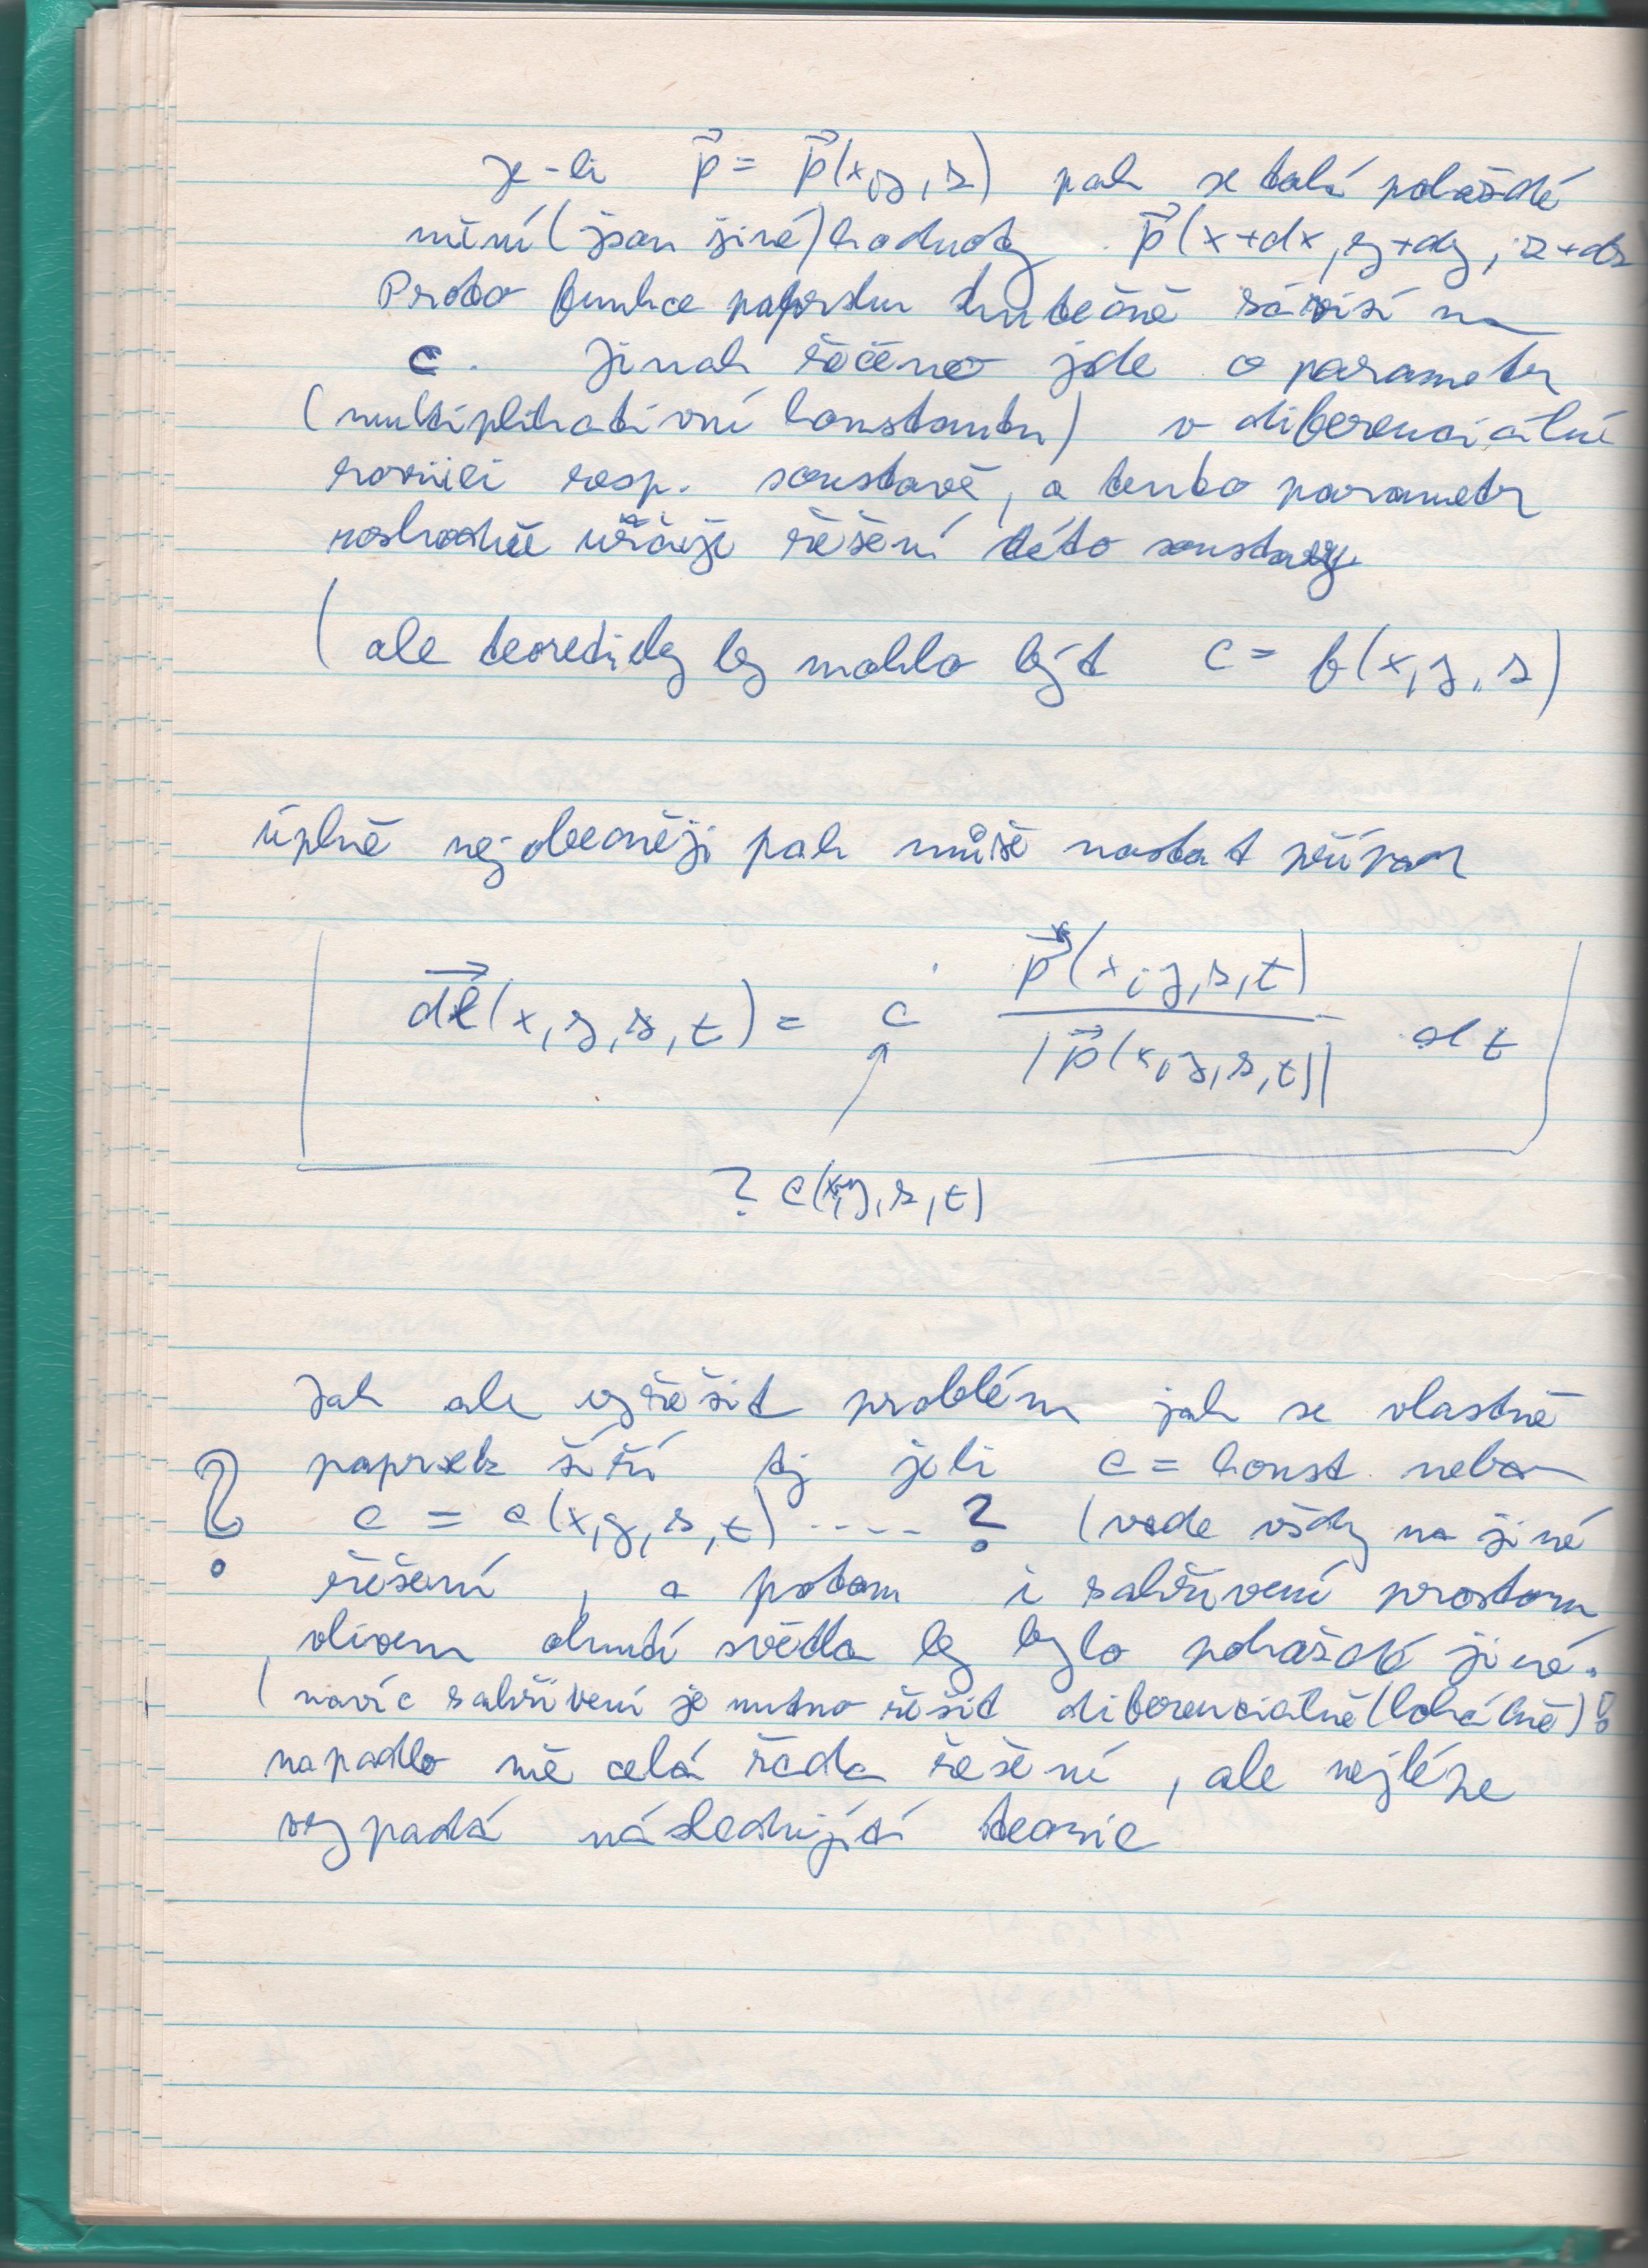 je-li p⃗ = p⃗(x,y,z) pak se také pokaždé
mění (jsou jiné) hodnoty p⃗(x+dx, y+dy, z+dz
Proto funkce paprsku skutečně závisí na
c. Jinak řečeno jde o parametr
(multiplikativní konstantu) v diferenciální
rovnici resp. soustavě, a tento parametr
rozhodně určuje řešení této soustavy
(ale teoreticky by mohlo být c = f(x,y,z)
úplně nejobecněji pak může nastat případ
d⃗l(x,y,z,t) = c · p⃗(x,y,z,t) / |p⃗(x,y,z,t)| · dt
? c(x,y,z,t)
Jak ale vyřešit problém jak se vlastně
paprsek šíří tj jeli c = konst. nebo
? c = c(x,y,z,t) ---- ? (vede vždy na jiné
řešení, a potom i zakřivení prostoru
vlivem ohnutí světla by bylo pokaždé jiné.
(navíc zakřivení je nutno řešit diferenciálně (lokálně)!
napadlo mě celá řada řešení, ale nejlépe
vypadá následující teorie